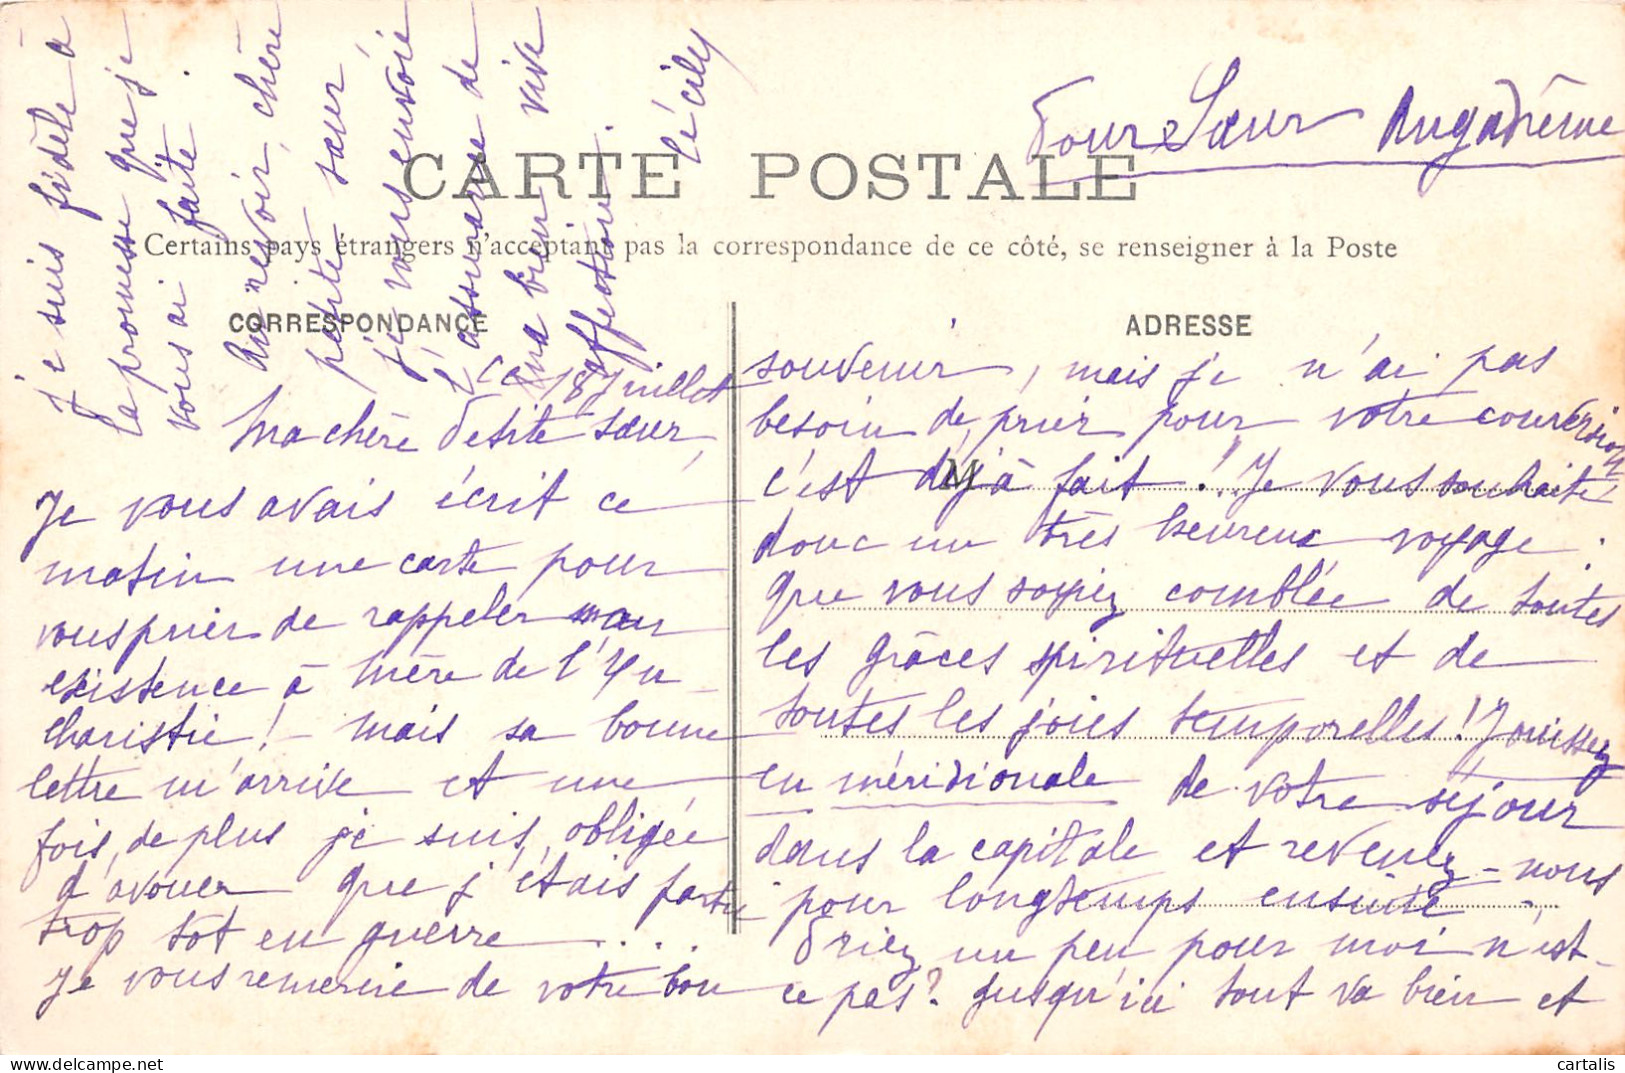 Pour Sœur Angadrême
CARTE POSTALE
Certains pays étrangers n'acceptant pas la correspondance de ce côté, se renseigner à la Poste
CORRESPONDANCE
ADRESSE
M
Le 18 Juillet
Ma chère Petite Sœur,
Je vous avais écrit ce
matin une carte pour
vous prier de rappeler mon
existence à Mère de l'Eu-
charistie ! - Mais sa bonne
lettre m'arrive et une
fois de plus je suis obligée
d'avouer que j'étais partie
trop tôt en guerre ....
Je vous remercie de votre bon
souvenir, mais je n'ai pas
besoin de prier pour votre conversion
c'est déjà fait ! Je vous souhaite
donc un très heureux voyage.
Que vous soyiez comblée de toutes
les grâces spirituelles et de
toutes les joies temporelles ! Jouissez
en méridionale de votre séjour
dans la capitale et revenez-nous
pour longtemps ensuite.
Priez un peu pour moi n'est-
ce pas ? Jusqu'ici tout va bien et
je suis fidèle à
la promesse que je
vous ai faite.
Au revoir, chère
petite sœur
je vous envoie
l'assurance de
ma bien vive
affection.
Cécily
cartalis